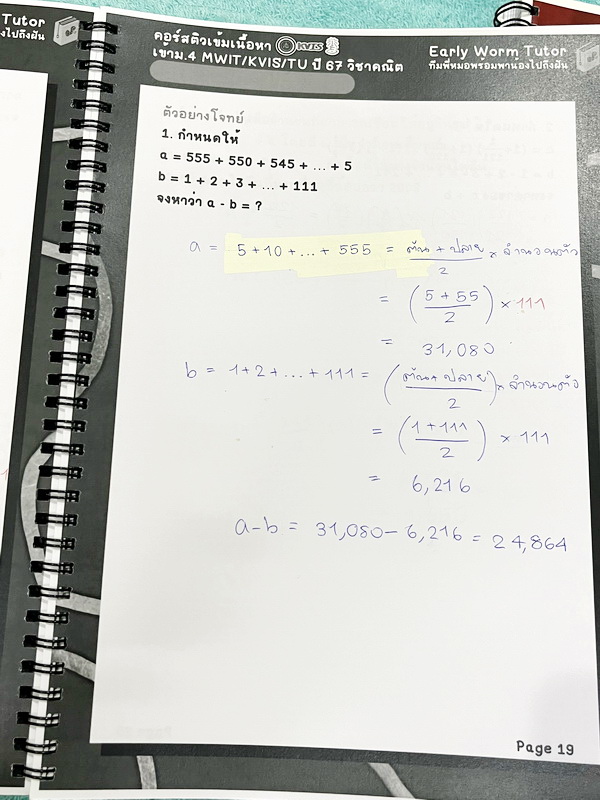 Tutor
งไปถึงฝัน
คอร์สติวเข้มเนื้อหา KVIS
เข้าม.4 MWIT/KVIS/TU ปี 67 วิชาคณิต
Early Worm Tutor
ทีมพี่หมอพร้อมพาน้องไปถึงฝัน
ตัวอย่างโจทย์
1. กำหนดให้
a = 555 + 550 + 545 + ... + 5
b = 1 + 2 + 3 + ... + 111
จงหาว่า a - b = ?
a = 5 + 10 + ... + 555 = (ต้น + ปลาย)/2 × จำนวนตัว
= (5 + 55/2) × 111
= 31,080
b = 1+2+...+111 = (ต้น + ปลาย/2) × จำนวนตัว
= (1 + 111/2) × 111
= 6,216
a-b = 31,080 - 6,216 = 24,864
Page 19